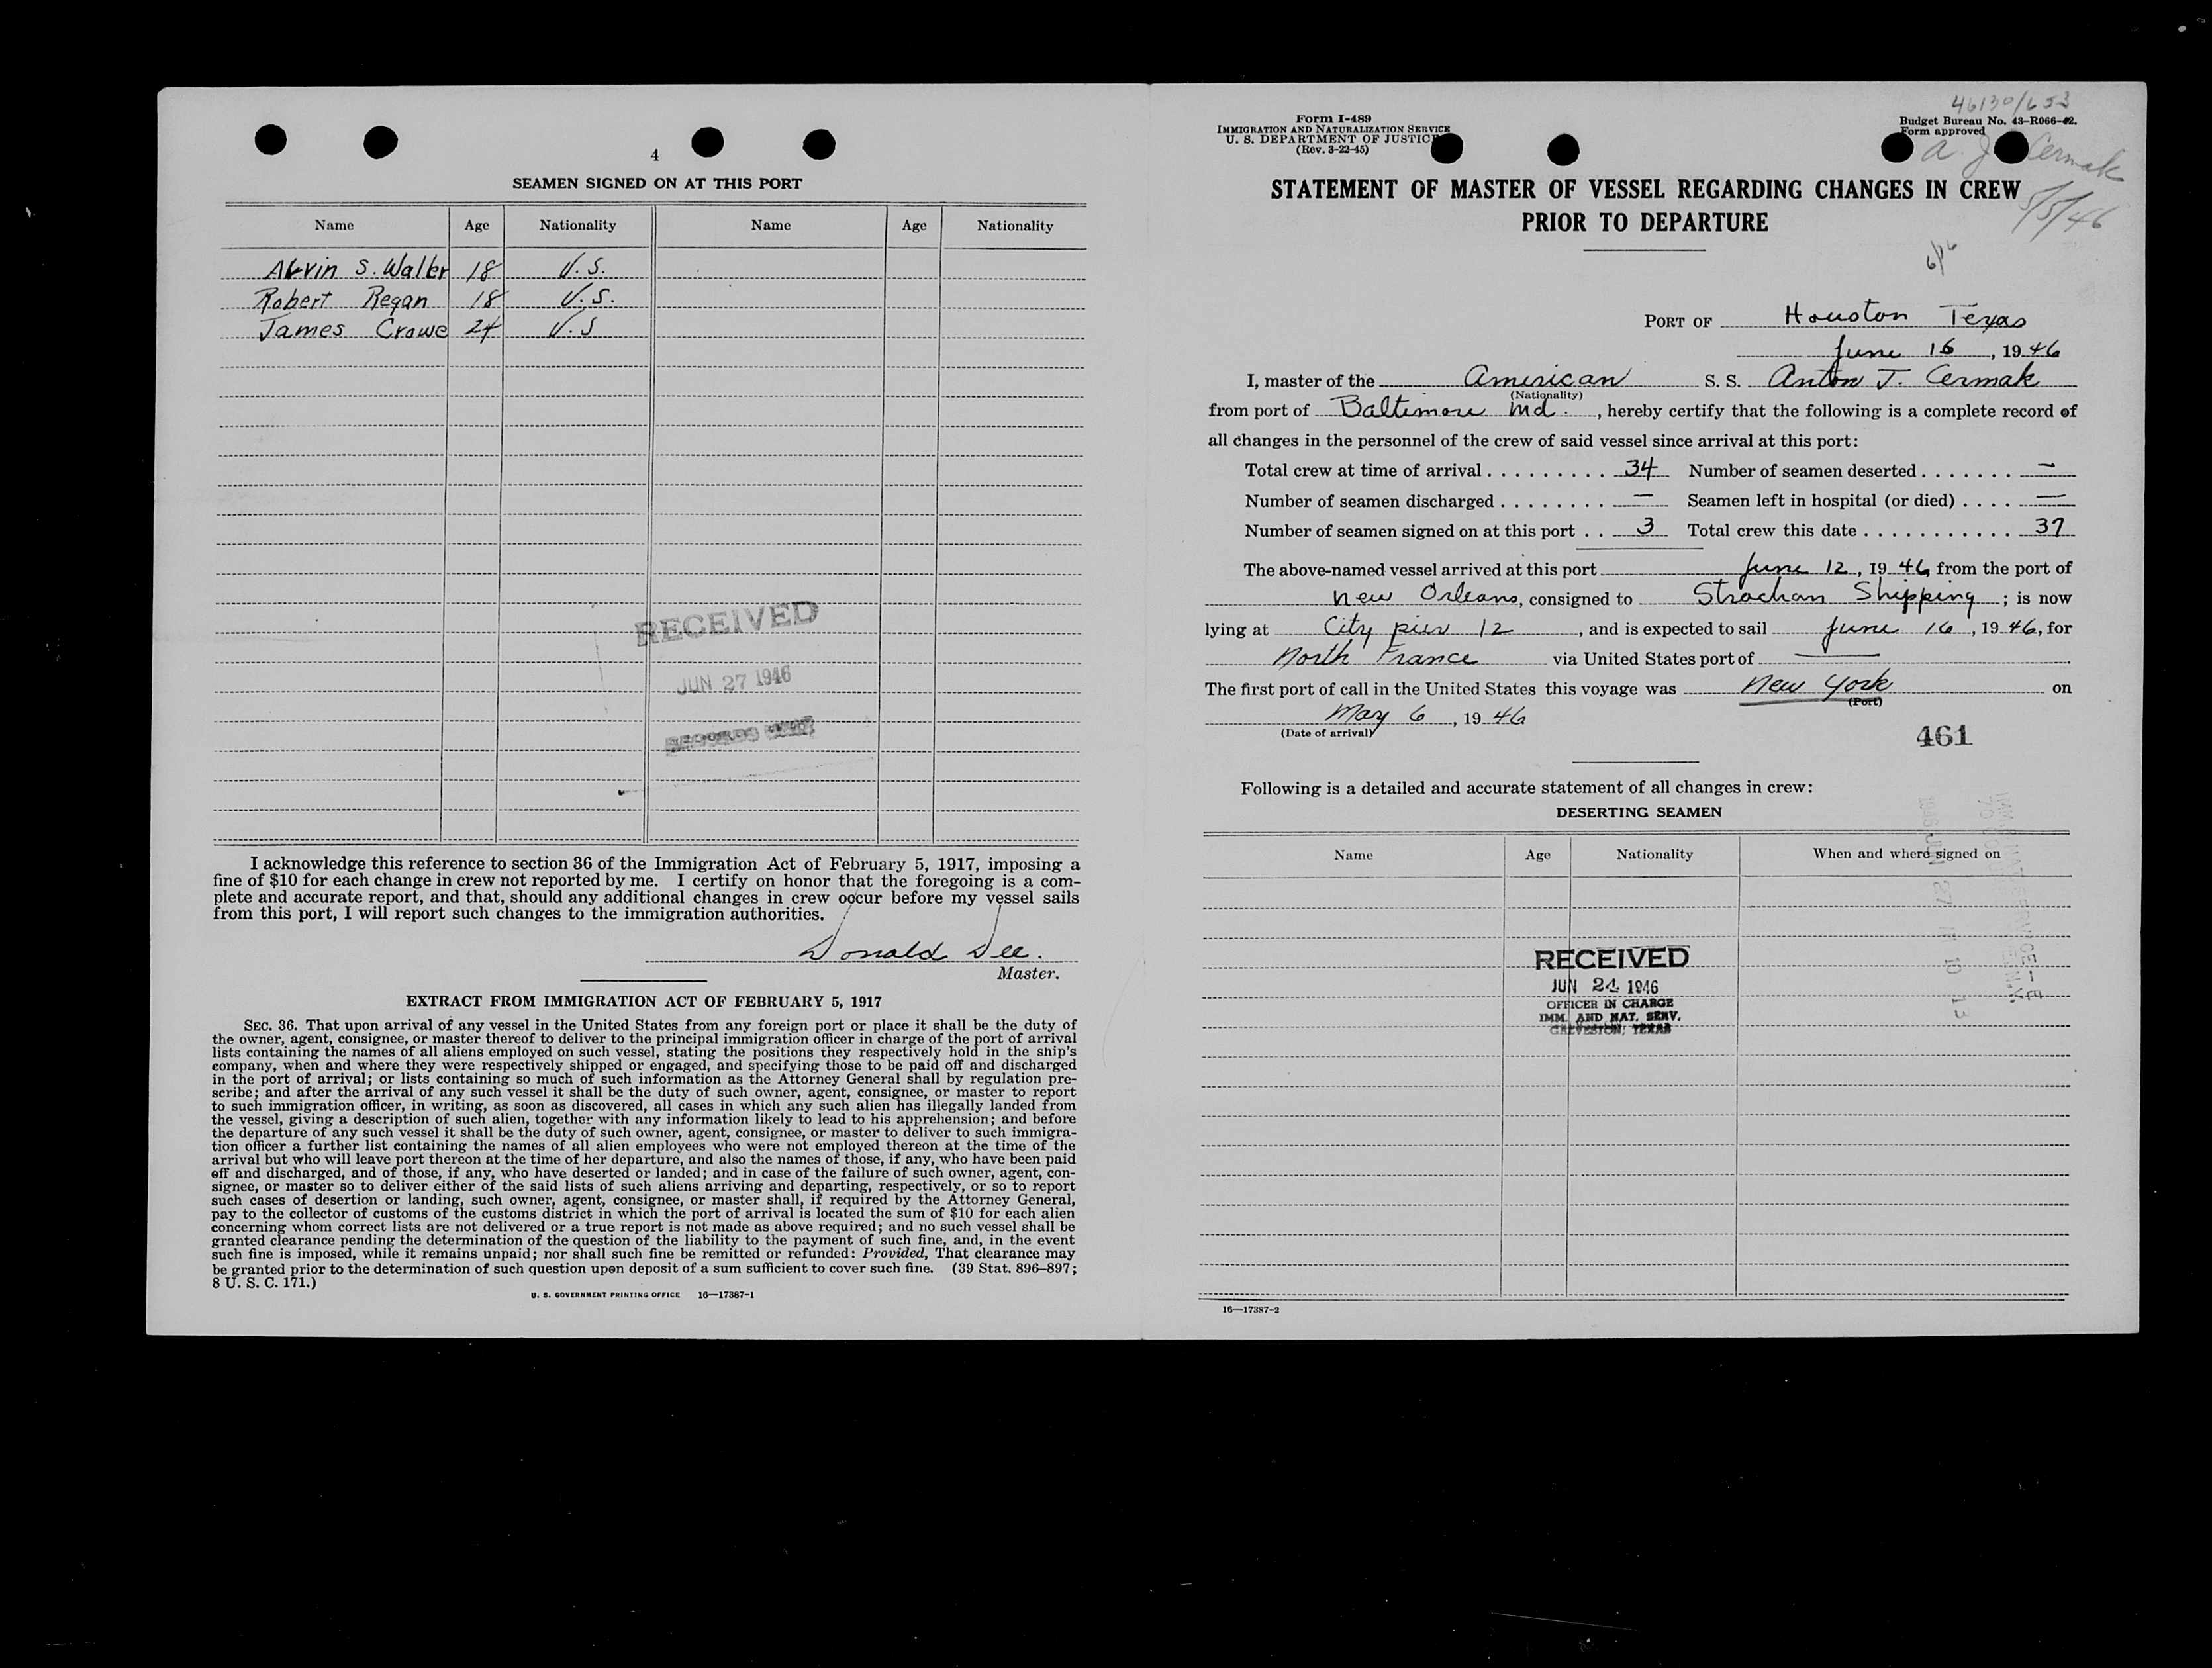 4
SEAMEN SIGNED ON AT THIS PORT
Name Age Nationality Name Age Nationality
Alvin S. Waller 18 U.S.
Robert Regan 18 U.S.
James Crowe 24 U.S
RECEIVED
JUN 27 1946
I acknowledge this reference to section 36 of the Immigration Act of February 5, 1917, imposing a
fine of $10 for each change in crew not reported by me. I certify on honor that the foregoing is a com-
plete and accurate report, and that, should any additional changes in crew occur before my vessel sails
from this port, I will report such changes to the immigration authorities.
Donald Dee.
Master.
EXTRACT FROM IMMIGRATION ACT OF FEBRUARY 5, 1917
SEC. 36. That upon arrival of any vessel in the United States from any foreign port or place it shall be the duty of
the owner, agent, consignee, or master thereof to deliver to the principal immigration officer in charge of the port of arrival
lists containing the names of all aliens employed on such vessel, stating the positions they respectively hold in the ship's
company, when and where they were respectively shipped or engaged, and specifying those to be paid off and discharged
in the port of arrival; or lists containing so much of such information as the Attorney General shall by regulation pre-
scribe; and after the arrival of any such vessel it shall be the duty of such owner, agent, consignee, or master to report
to such immigration officer, in writing, as soon as discovered, all cases in which any such alien has illegally landed from
the vessel, giving a description of such alien, together with any information likely to lead to his apprehension; and before
the departure of any such vessel it shall be the duty of such owner, agent, consignee, or master to deliver to such immigra-
tion officer a further list containing the names of all alien employees who were not employed thereon at the time of the
arrival but who will leave port thereon at the time of her departure, and also the names of those, if any, who have been paid
off and discharged, and of those, if any, who have deserted or landed; and in case of the failure of such owner, agent, con-
signee, or master so to deliver either of the said lists of such aliens arriving and departing, respectively, or so to report
such cases of desertion or landing, such owner, agent, consignee, or master shall, if required by the Attorney General,
pay to the collector of customs of the customs district in which the port of arrival is located the sum of $10 for each alien
concerning whom correct lists are not delivered or a true report is not made as above required; and no such vessel shall be
granted clearance pending the determination of the question of the liability to the payment of such fine, and, in the event
such fine is imposed, while it remains unpaid; nor shall such fine be remitted or refunded: Provided, That clearance may
be granted prior to the determination of such question upon deposit of a sum sufficient to cover such fine. (39 Stat. 896–897;
8 U. S. C. 171.)
U. S. GOVERNMENT PRINTING OFFICE 16—17387-1
46130/653
Form I-489
IMMIGRATION AND NATURALIZATION SERVICE
U. S. DEPARTMENT OF JUSTICE
(Rev. 3-22-45)
Budget Bureau No. 43-R066-42.
Form approved
A. J. Cermak
5/5/46
STATEMENT OF MASTER OF VESSEL REGARDING CHANGES IN CREW
PRIOR TO DEPARTURE
6/16
PORT OF Houston Texas
June 16, 1946
I, master of the American S. S. Anton J. Cermak
(Nationality)
from port of Baltimore Md., hereby certify that the following is a complete record of
all changes in the personnel of the crew of said vessel since arrival at this port:
Total crew at time of arrival 34 Number of seamen deserted —
Number of seamen discharged — Seamen left in hospital (or died) —
Number of seamen signed on at this port 3 Total crew this date 37
The above-named vessel arrived at this port June 12, 1946 from the port of
New Orleans, consigned to Strachan Shipping; is now
lying at City pier 12, and is expected to sail June 16, 1946, for
North France via United States port of —
The first port of call in the United States this voyage was New York on
(Port)
May 6, 1946
(Date of arrival)
461
Following is a detailed and accurate statement of all changes in crew:
DESERTING SEAMEN
Name Age Nationality When and where signed on
RECEIVED
JUN 24 1946
OFFICER IN CHARGE
IMM. AND NAT. SERV.
GALVESTON, TEXAS
16—17387-2